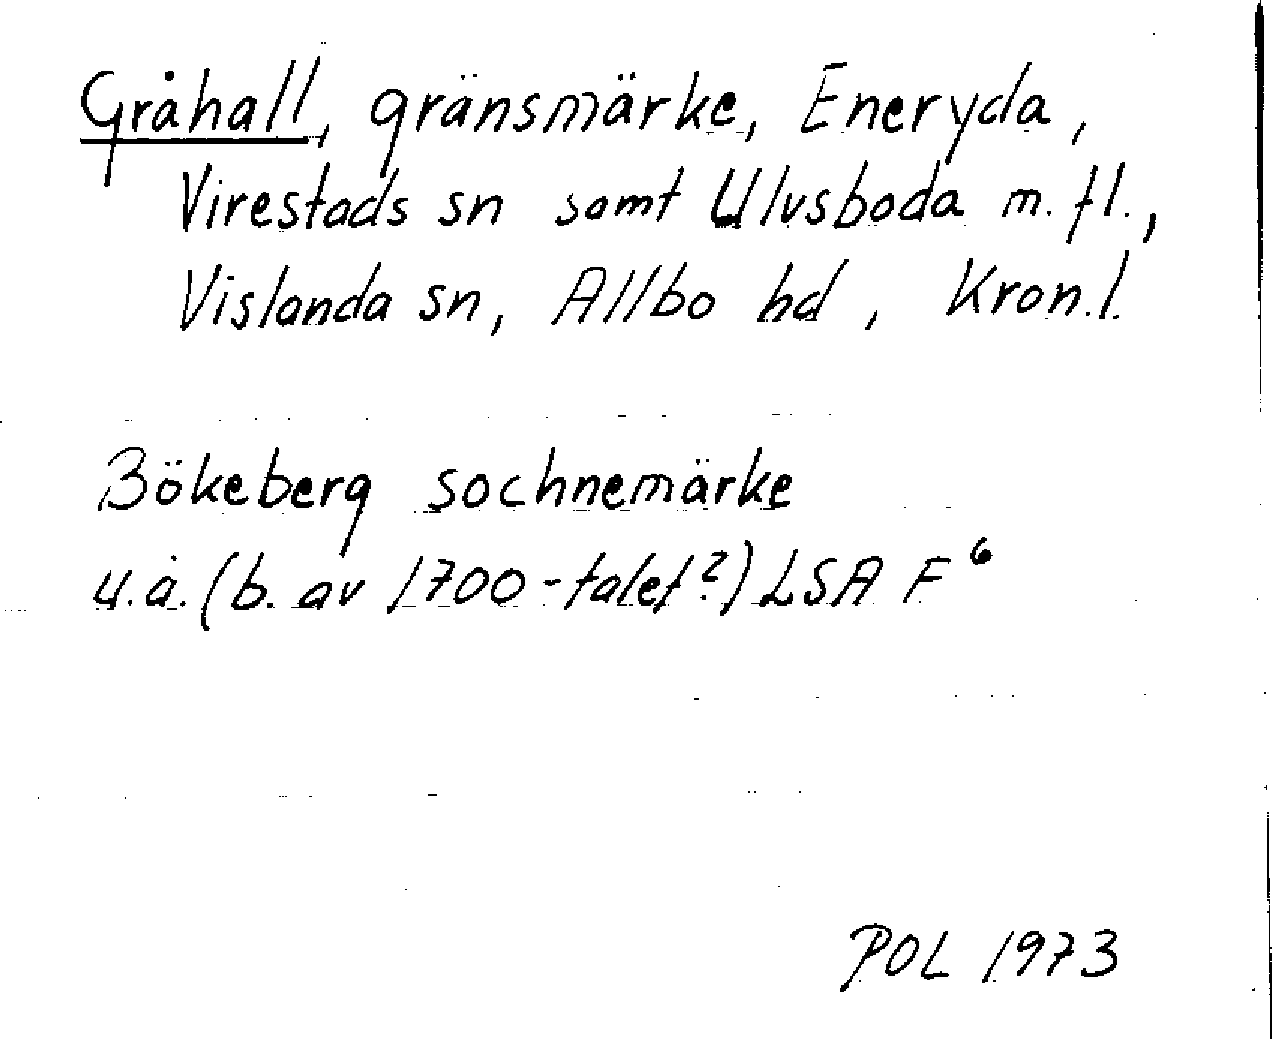 Gråhall, gränsmärke, Eneryda,
Virestads sn samt Ulvsboda m. fl.,
Vislanda sn, Allbo hd, Kron.l.
Bökeberg sochnemärke
u.å. (b. av 1700-talet?) LSA F⁶
POL 1973